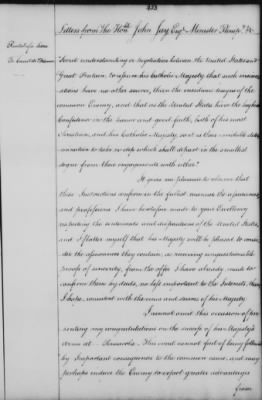 433
Letters from The Honble John Jay Esqr Minister Plenipo. &c
Roodolfo from
To Count de Florida
Secret understanding or negotiation between the United States and
Great Britain, to assure his Catholic Majesty that such insinu-
ations have no other source, than the insidious designs of the
common Enemy, and that as the United States have the highest
Confidence in the honor and good faith, both of his most
Christian, and his Catholic Majesty, so it is their unalterable deter-
mination to take no step which shall depart in the smallest
degree from their engagements with either."
It gives me pleasure to observe that
these Instructions confirm in the fullest manner the assurances
and professions I have heretofore made to your Excellency
respecting the sentiments and dispositions of the United States,
and I flatter myself that his Majesty will be pleased to consi-
der the assurances they contain, as receiving unquestionable
proofs of sincerity, from the offer I have already made to
confirm them by deeds, no less important to the Interests, than
I hope, consistent with the views and desires of his Majesty.
I cannot omit this occasion of pre-
senting my congratulations on the success of his Majesty's
arms at Pensacola. This event cannot fail of being followed
by Important consequences to the common cause, and may
perhaps induce the Enemy to expect greater advantages
from